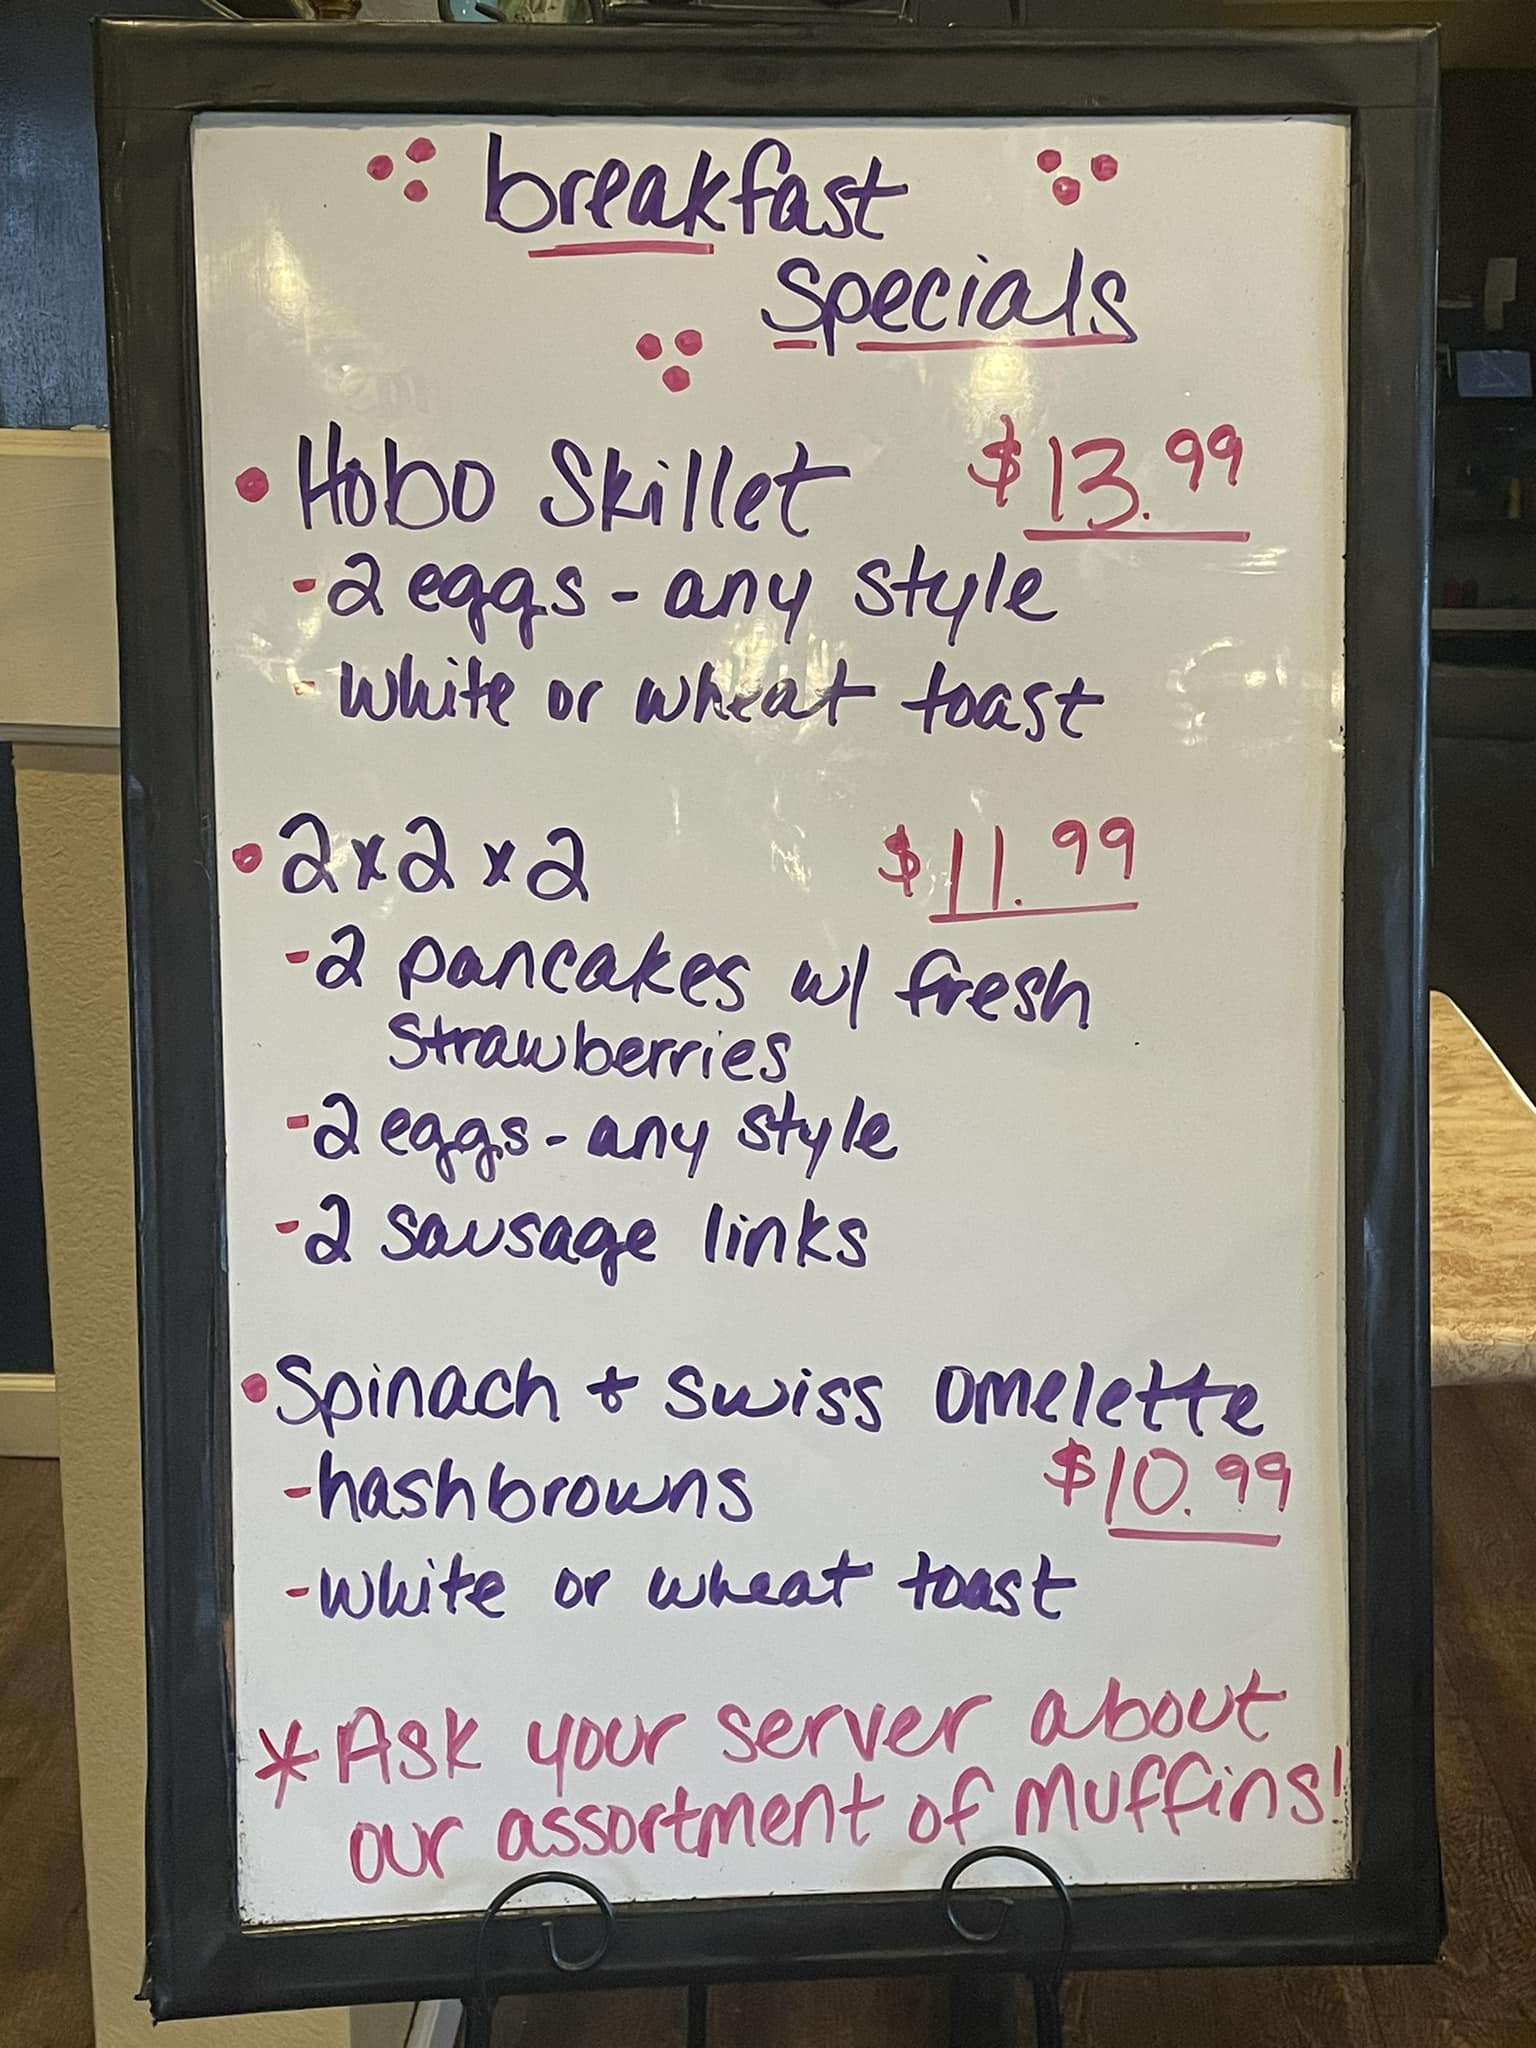 breakfast
Specials
• Hobo Skillet $13.99
- 2 eggs - any style
- white or wheat toast
• 2x2x2 $11.99
- 2 pancakes w/ fresh
strawberries
- 2 eggs - any style
- 2 sausage links
• Spinach + swiss omelette
- hashbrowns $10.99
- white or wheat toast
* Ask your server about
our assortment of muffins!